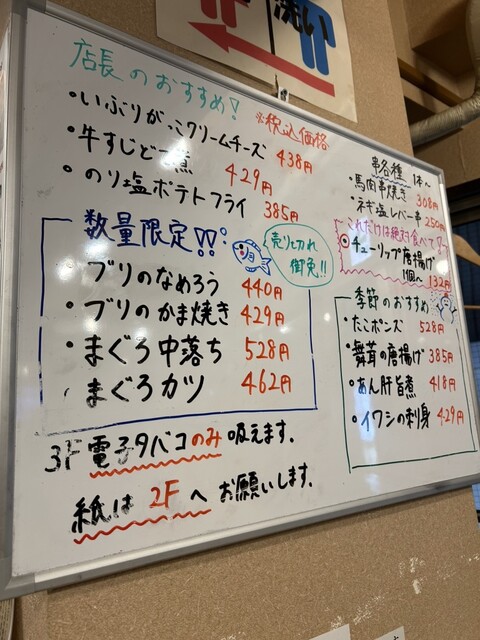 洗い
店長のおすすめ!
※税込価格
・いぶりがっこクリームチーズ 438円
・牛すじどて煮 429円
・のり塩ポテトフライ 385円
数量限定!!
売り切れ
御免!!
・ブリのなめろう 440円
・ブリのかま焼き 429円
・まぐろ中落ち 528円
・まぐろカツ 462円
3F電子タバコのみ吸えます.
紙は2Fへお願いします.
串各種 1本〜
・馬肉串焼き 308円
・ネギ塩レバー串 250円
これだけは絶対食べて
チューリップ唐揚げ
1個 132円
季節のおすすめ
・たこポンズ 528円
・舞茸の唐揚げ 385円
・あん肝旨煮 418円
・イワシの刺身 429円